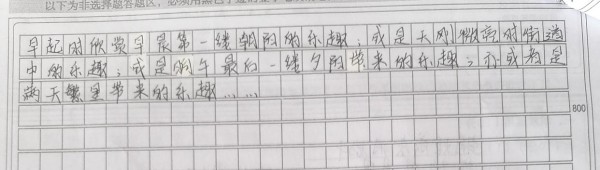 以下为非选择题答题区，必须用黑色字迹的
早起时欣赏早晨第一缕朝阳的乐趣；或是天刚微亮时街道
中的乐趣；或是下午最后一缕夕阳带来的乐趣；亦或者是
满天繁星带来的乐趣……
800